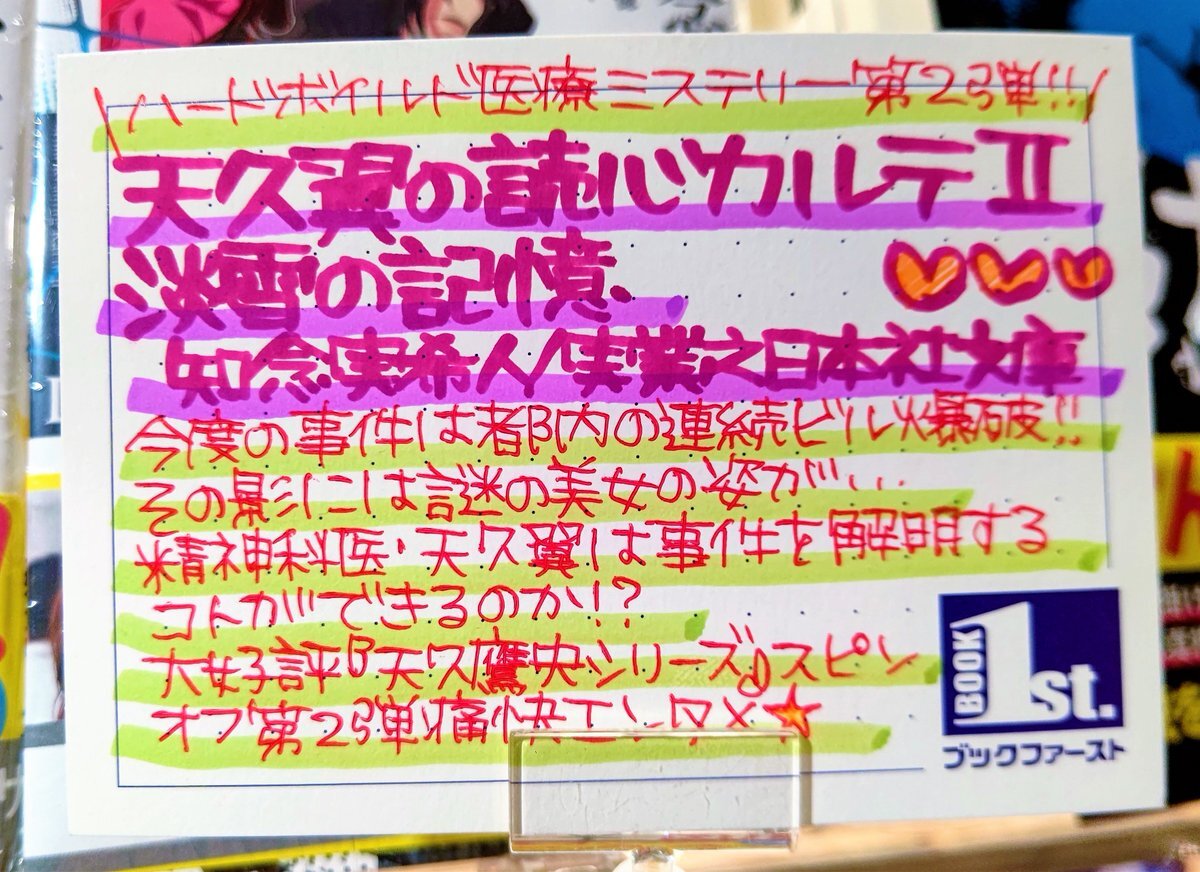 \ハードボイルド医療ミステリー第2弾!!/
天久翼の読心カルテⅡ
淡雪の記憶
知念実希人/実業之日本社文庫
今度の事件は都内の連続ビル爆破!!
その影には謎の美女の姿が…
精神科医・天久翼は事件を解明する
コトができるのか!?
大好評天久鷹央シリーズ♪スピン
オフ第2弾痛快エンタメ★
BOOK 1st.
ブックファースト